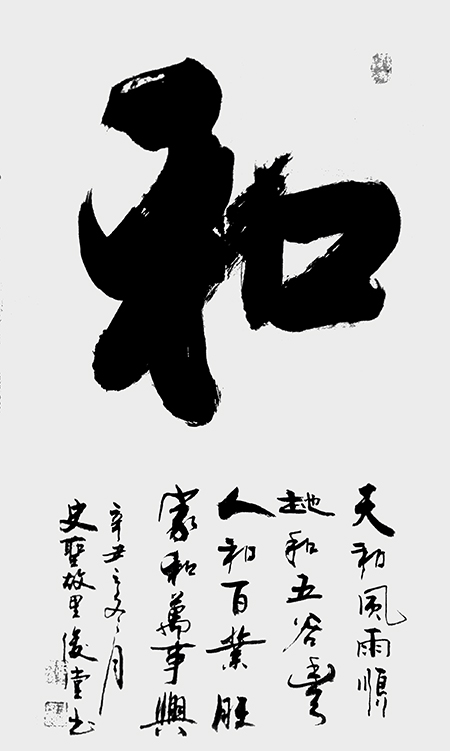 和
天和風雨順
地和五谷豐
人和百業旺
家和萬事興
辛丑之冬月
史聖故里俊堂书